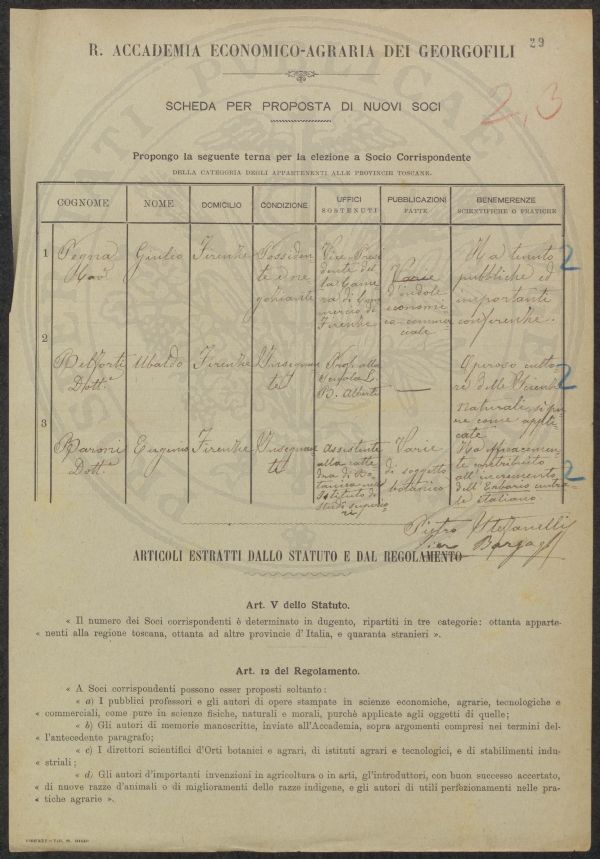 29
R. ACCADEMIA ECONOMICO-AGRARIA DEI GEORGOFILI
2,3
SCHEDA PER PROPOSTA DI NUOVI SOCI
Propongo la seguente terna per la elezione a Socio Corrispondente
DELLA CATEGORIA DEGLI APPARTENENTI ALLE PROVINCIE TOSCANE.
COGNOME NOME DOMICILIO CONDIZIONE UFFICI SOSTENUTI PUBBLICAZIONI FATTE BENEMERENZE SCIENTIFICHE O PRATICHE
1
Pegna
Cav.
Giulio
Firenze
Possiden-
te e ne-
goziante
Vice Presi
dente del
la Came
ra di Com
mercio di
Firenze
Varie
d'indole
economi
co-commer
ciale
Ha tenuto
pubbliche ed
importanti
conferenze.
2
2
Belforti
Dott.
Ubaldo
Firenze
Insegnan
te
Prof. alla
Scuola L.
B. Alberti
—
Operoso culto
re delle Scienze
Naturali, si pu
re come appli
cate
2
3
Baroni
Dott.
Eugenio
Firenze
Insegnan
te
Assistente
alla catte
dra di Bo
tanica nell'
Istituto di
Studi superio
ri
Varie
di soggetto
botanico
Ha efficacemen
te contribuito
all'incremento
dell'Erbario centra-
le italiano.
2
Pietro Stefanelli
Pier Bargagli
ARTICOLI ESTRATTI DALLO STATUTO E DAL REGOLAMENTO
Art. V dello Statuto.
« Il numero dei Soci corrispondenti è determinato in dugento, ripartiti in tre categorie: ottanta apparte-
« nenti alla regione toscana, ottanta ad altre provincie d' Italia, e quaranta stranieri ».
Art. 12 del Regolamento.
« A Soci corrispondenti possono esser proposti soltanto:
« a) I pubblici professori e gli autori di opere stampate in scienze economiche, agrarie, tecnologiche e
« commerciali, come pure in scienze fisiche, naturali e morali, purchè applicate agli oggetti di quelle;
« b) Gli autori di memorie manoscritte, inviate all'Accademia, sopra argomenti compresi nei termini del-
« l'antecedente paragrafo;
« c) I direttori scientifici d'Orti botanici e agrari, di istituti agrari e tecnologici, e di stabilimenti indu-
« striali;
« d) Gli autori d'importanti invenzioni in agricoltura o in arti, gl'introduttori, con buon successo accertato,
« di nuove razze d'animali o di miglioramenti delle razze indigene, e gli autori di utili perfezionamenti nelle pra-
« tiche agrarie ».